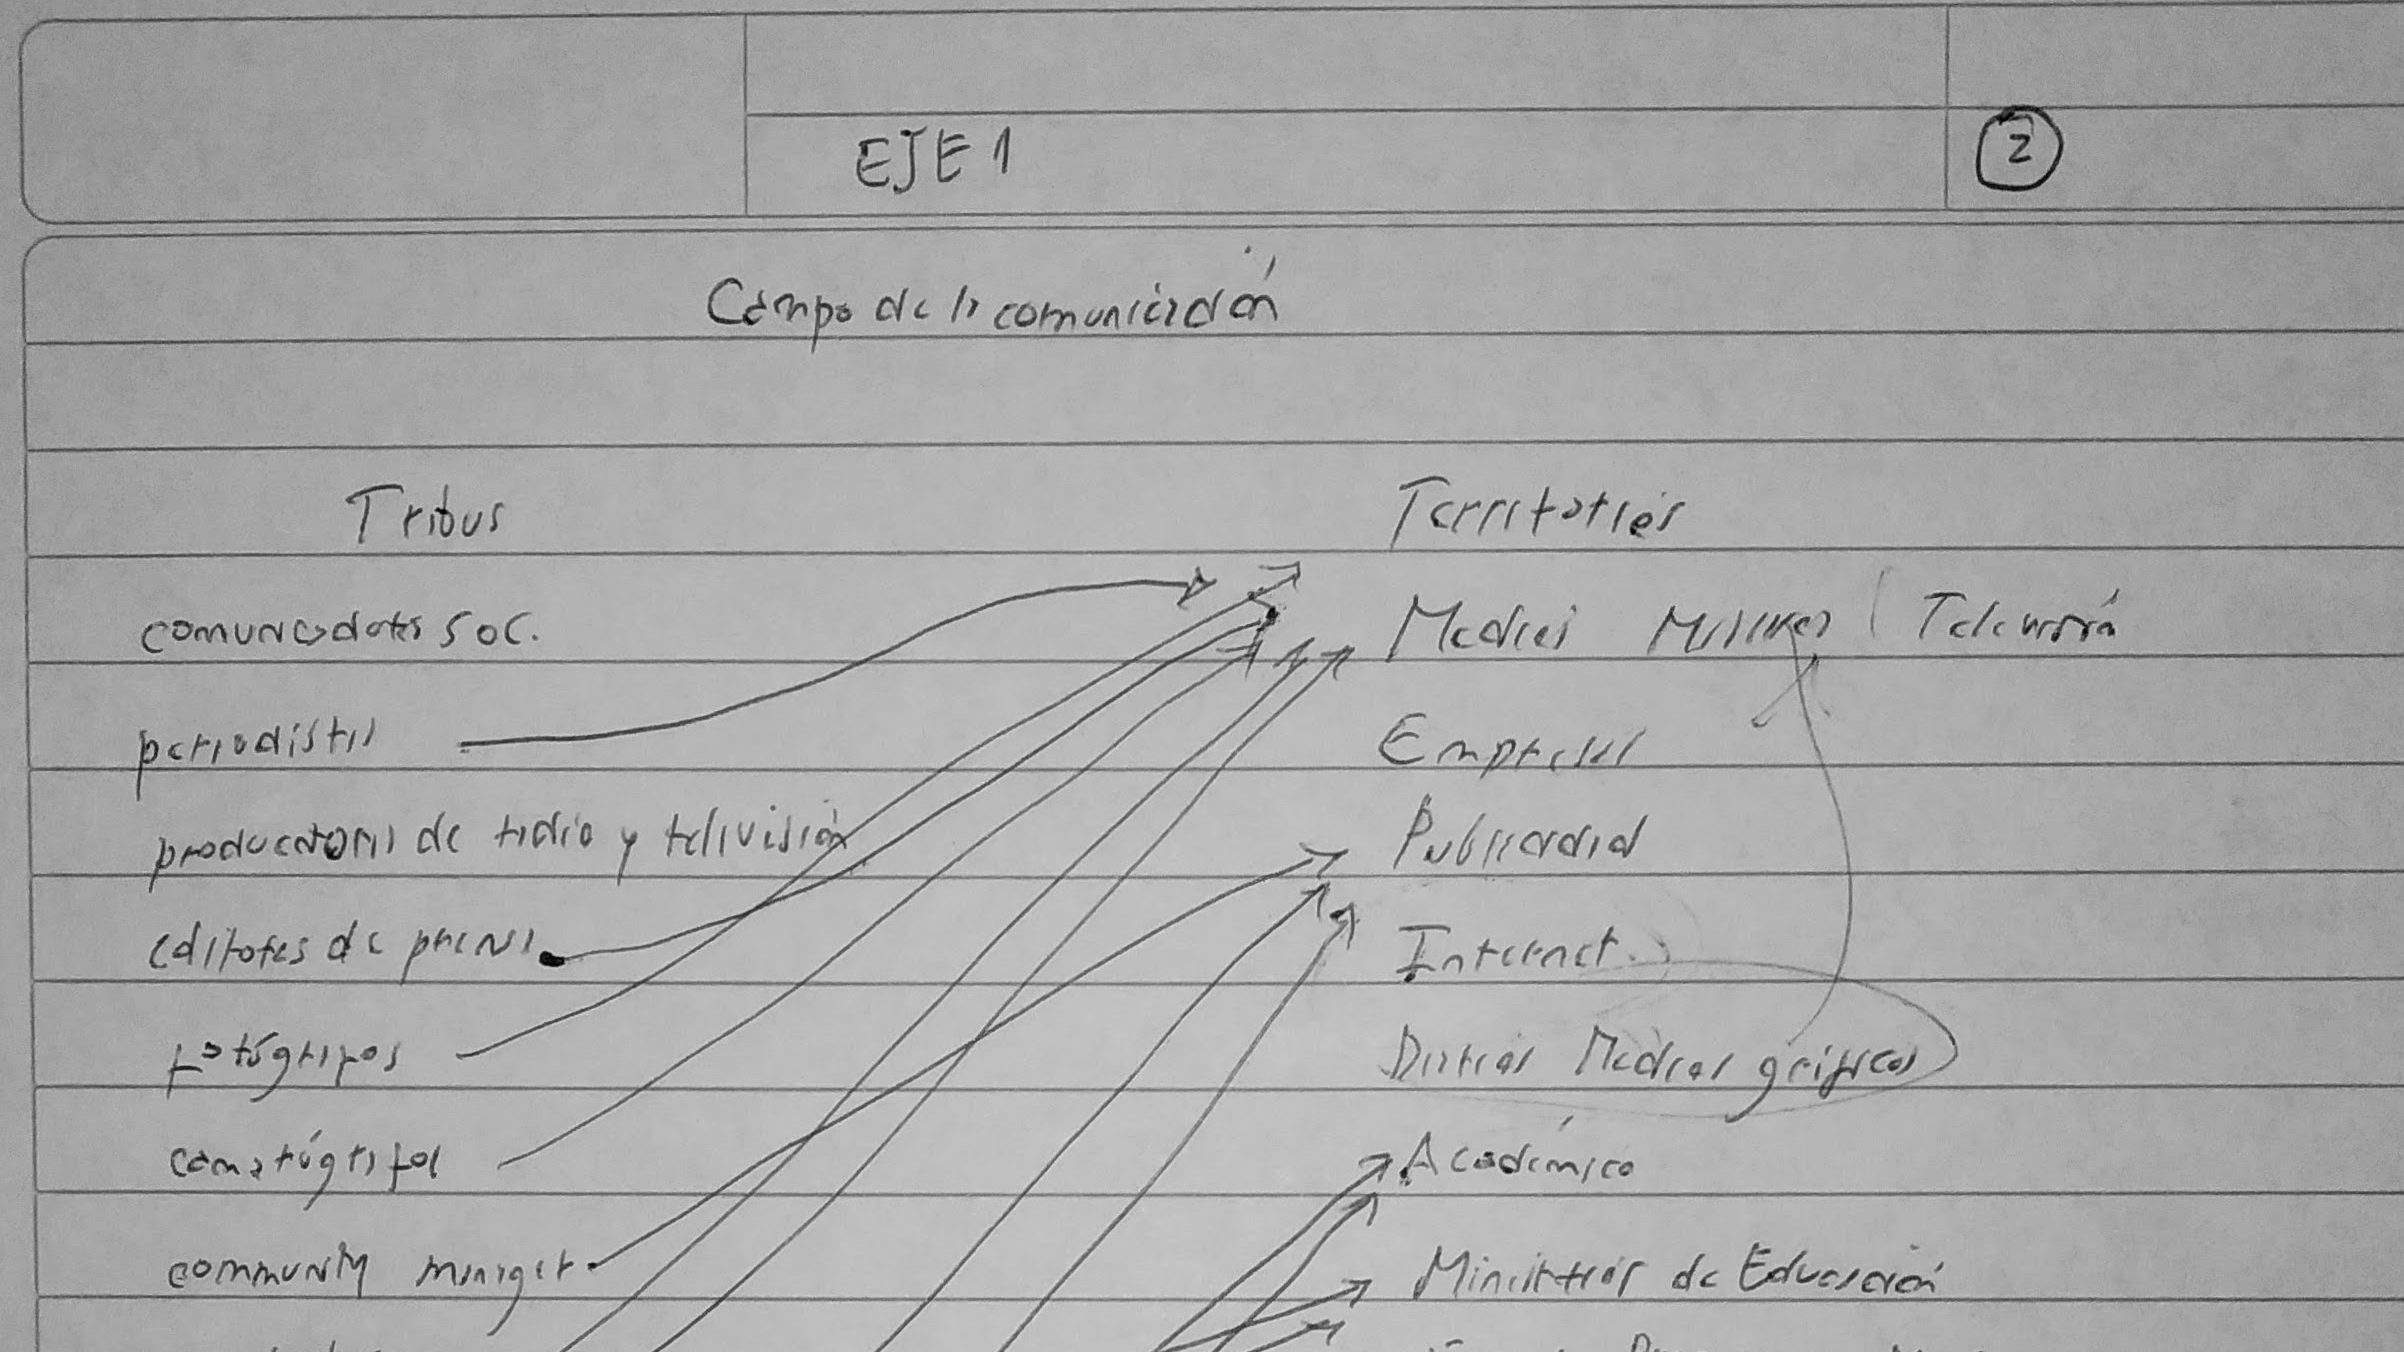 EJE 1
2
Campo de la comunicación
Tribus
Territorios
comunicadores soc.
Medios Masivos ( Televisión
periodistas
Empresas
productores de radio y televisión
Publicidad
editores de prensa
Internet.
fotógrafos
Diarios Medios gráficos
camarógrafos
Académico
community manager
Ministerios de Educación